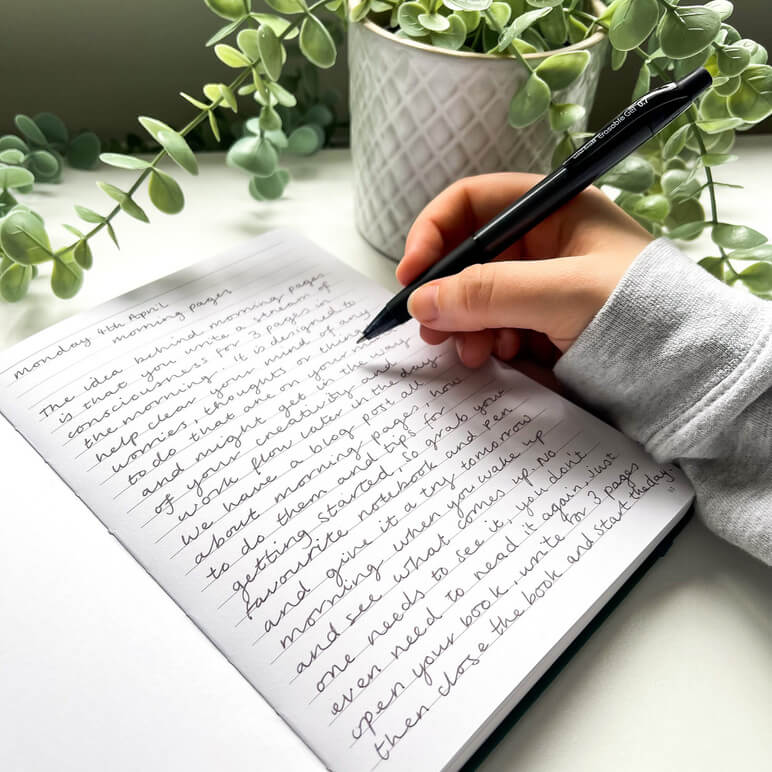 monday 4th April
morning pages
The idea behind morning pages
is that you write a stream of
consciousness for 3 pages in
the morning. It is designed to
help clear your mind of any
worries, thoughts or things
to do that are on your mind
and might get in the way
of your creativity and
work flow later in the day.
We have a blog post all
about morning pages, how
to do them and tips for
getting started, so grab your
favourite notebook and pen
and give it a try tomorrow
morning when you wake up
and see what comes up. No
one needs to see it, you don't
even need to read it again, just
open your book, write for 3 pages
then close the book and start the day.
Erasable Gel 0.7